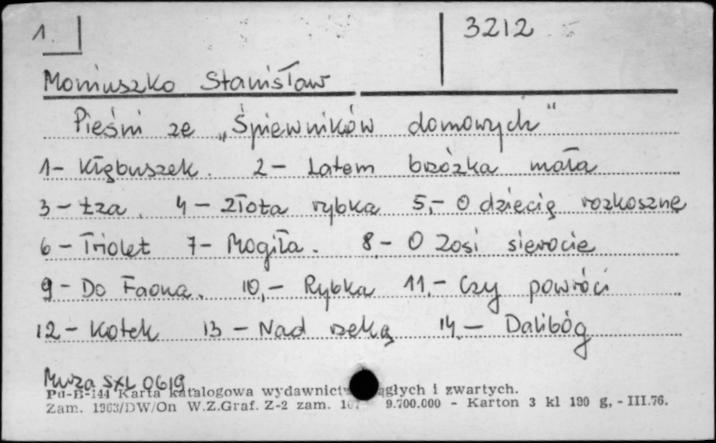 1. 3212
Moniuszko Stanisław
Pieśni ze „Śpiewników domowych"
1- Kłębuszek. 2- Latem brzózka mała
3- Łza. 4- Złota rybka 5,- O dziecię rozkoszne
6- Triolet 7- Mogiła. 8,- O Zosi sierocie
9- Do Faona. 10,- Rybka 11.- Czy powróci
12- Kotek 13- Nad rzeką 14.- Dalibóg
Muza SXL 0619
Pu-B-144 Karta katalogowa wydawnictw ciągłych i zwartych.
Zam. 1963/DW/On W.Z.Graf. Z-2 zam. 9.700.000 - Karton 3 kl 190 g, - III.76.